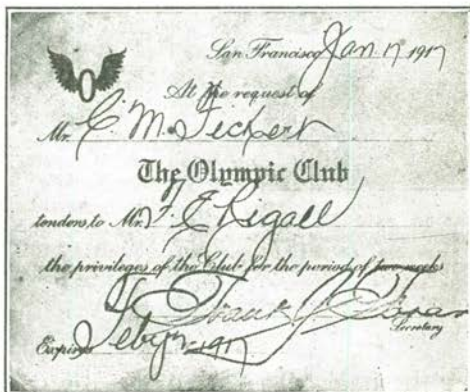 San Francisco, Jan. 17 1917
At the request of
Mr. C. M. Fickert
The Olympic Club
tenders to Mr. F. E. Rigall
the privileges of the Club for the period of two weeks
Frank J.
Secretary
Expires 1917